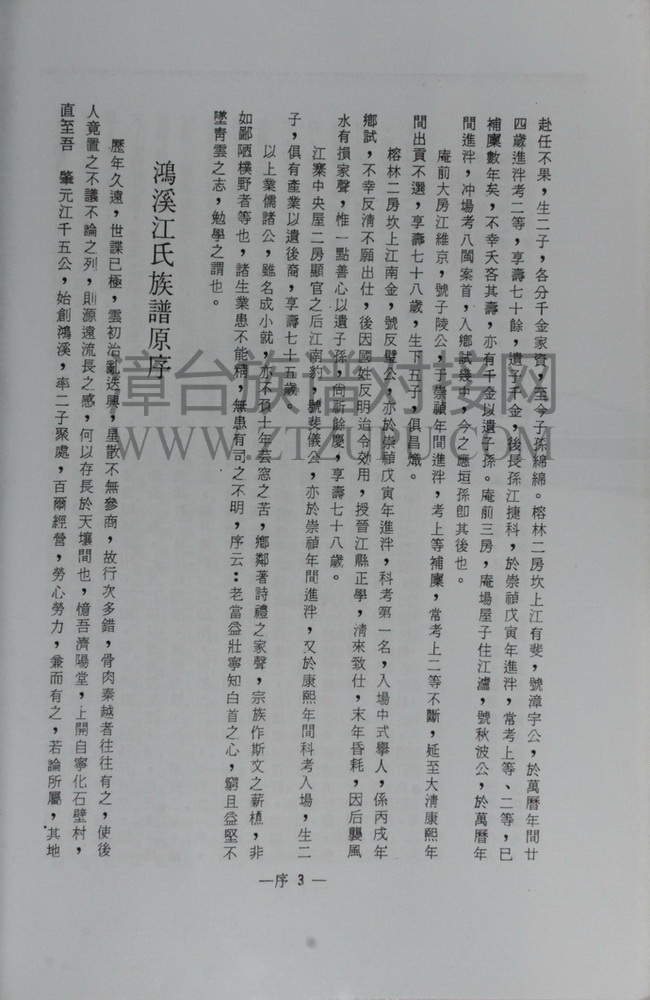 赴任不果，生二子，各分千金家資，至今子孫綿綿。榕林二房坎上江有斐，號漳宇公，於萬曆年間廿
四歲進泮考二等，享壽七十餘，遺子千金，後長孫江捷科，於崇禎戊寅年進泮，常考上等、二等，已
補廩數年矣，不幸夭客其壽，亦有千金以遺子孫。庵前三房，庵場屋子住江瀘，號秋波公，於萬曆年
間進泮，冲場考八閩案首，入鄉試幾中，今之應垣孫卽其後也。
庵前大房江維京，號子陵公，于崇禎年間進泮，考上等補廩，常考上二等不斷，延至大淸康熙年
間出貢不選，享壽七十八歲，生下五子，俱昌熾。
榕林二房坎上江南金，號反璧公，亦於崇禎戊寅年進泮，科考第一名，入場中式舉人，係丙戌年
鄉試，不幸反淸不願出仕，後因國姓反明治令効用，授晉江縣正學，淸來致仕，末年昏耗，因后襲風
水有損家聲，惟一點善心以遺子孫，尙祈餘慶，享壽七十八歲。
江寨中央屋二房顯官之后江南豹，號斐儀公，亦於崇禎年間進泮，又於康熙年間科考入場，生二
子，俱有產業以遺後裔，享壽七十五歲。
以上業儒諸公，雖名成小就，亦不負十年芸窓之苦，鄉鄰著詩禮之家聲，宗族作斯文之薪樵，非
如鄙陋樸野者等也，諸生業患不能精，無患有司之不明，序云：老當益壯寧知白首之心，窮且益堅不
墜靑雲之志，勉學之謂也。
鴻溪江氏族譜原序
歷年久遠，世諜已極，雲初治亂迭興，星散不無參商，故行次多錯，骨肉秦越者往往有之，使後
人竟置之不議不論之列，則源遠流長之感，何以存長於天壤間也，憶吾濟陽堂，上開自寧化石壁村，
直至吾　肇元江千五公，始創鴻溪，率二子聚處，百爾經營，勞心勞力，兼而有之，若論所屬，其地
—序 3 —
章台族谱对接网
WWW.ZTZUPU.COM